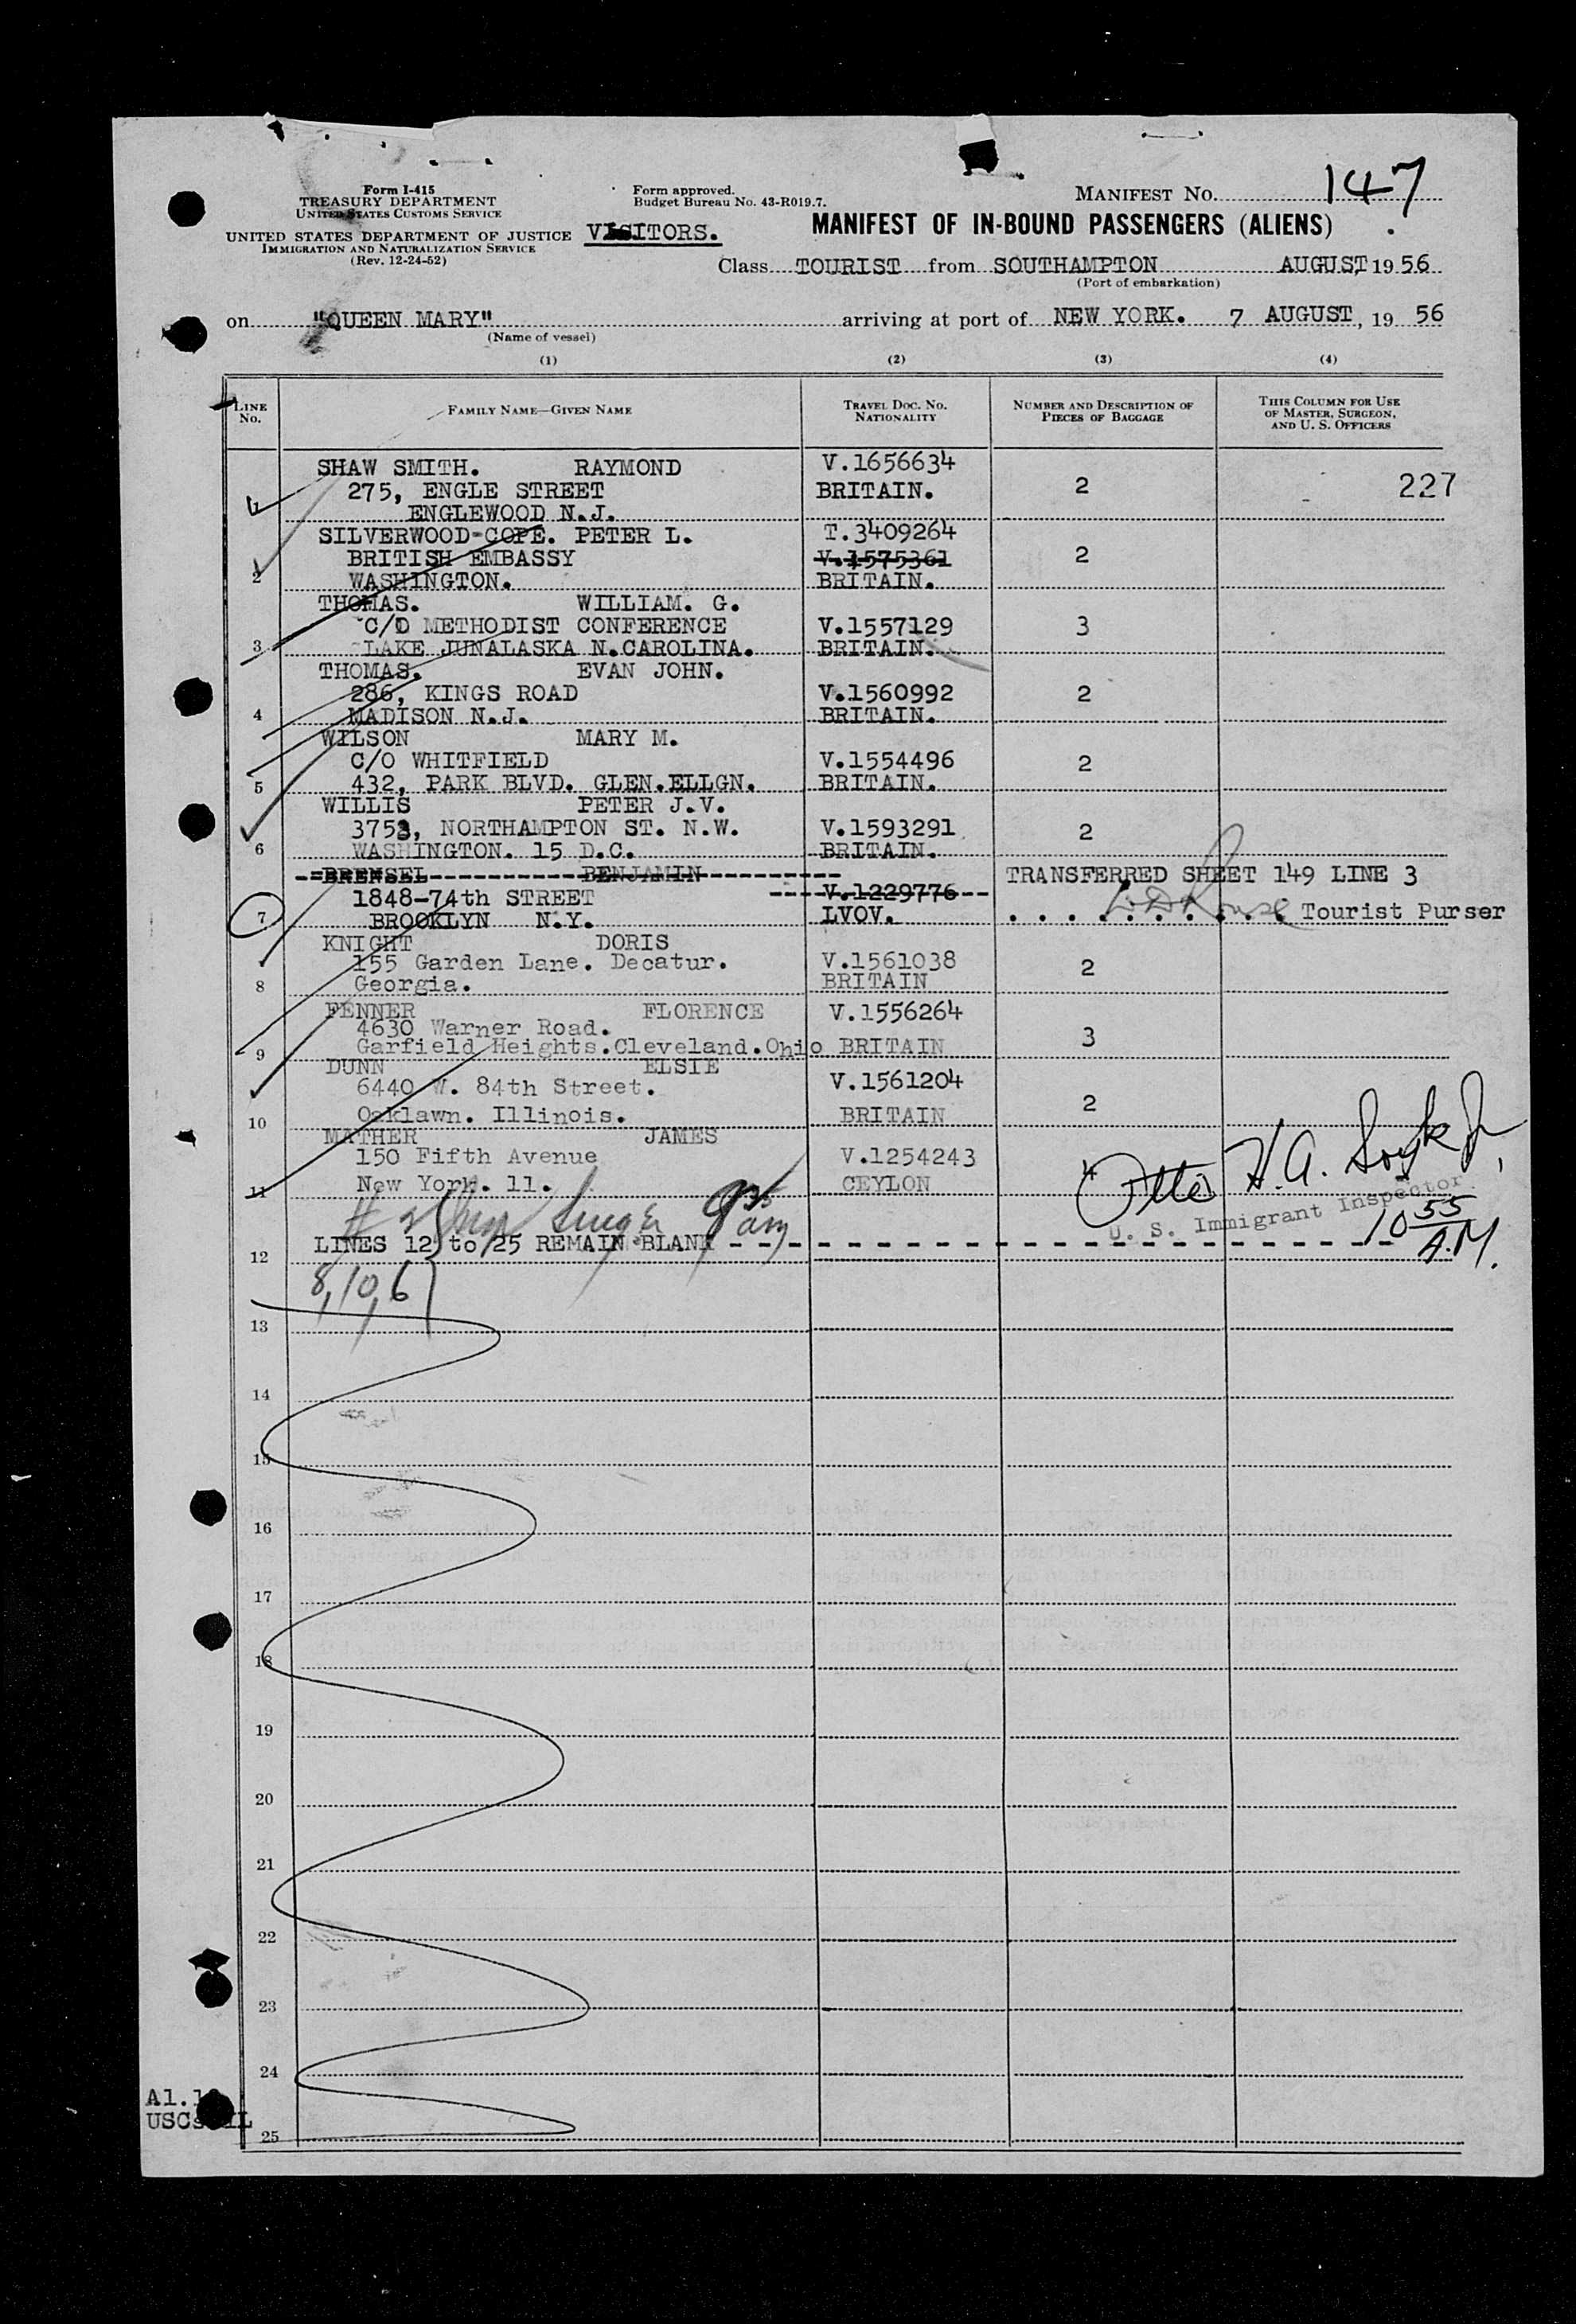 Form I-415
TREASURY DEPARTMENT
UNITED STATES CUSTOMS SERVICE
UNITED STATES DEPARTMENT OF JUSTICE
IMMIGRATION AND NATURALIZATION SERVICE
(Rev. 12-24-52)
VISITORS.
Form approved.
Budget Bureau No. 43-R019.7.
MANIFEST NO. 147
MANIFEST OF IN-BOUND PASSENGERS (ALIENS)
Class TOURIST from SOUTHAMPTON AUGUST, 19 56
(Port of embarkation)
on "QUEEN MARY" arriving at port of NEW YORK. 7 AUGUST, 19 56
(Name of vessel)
(1) (2) (3) (4)
LINE NO. FAMILY NAME—GIVEN NAME TRAVEL DOC. NO. NATIONALITY NUMBER AND DESCRIPTION OF PIECES OF BAGGAGE THIS COLUMN FOR USE OF MASTER, SURGEON, AND U. S. OFFICERS
SHAW SMITH. RAYMOND V.1656634
275, ENGLE STREET BRITAIN. 2 227
ENGLEWOOD N.J.
SILVERWOOD-COPE. PETER L. T.3409264
BRITISH EMBASSY V.1575361 2
2 WASHINGTON. BRITAIN.
THOMAS. WILLIAM. G.
C/O METHODIST CONFERENCE V.1557129 3
3 LAKE JUNALASKA N.CAROLINA. BRITAIN.
THOMAS. EVAN JOHN.
286, KINGS ROAD V.1560992 2
4 MADISON N.J. BRITAIN.
WILSON MARY M.
C/O WHITFIELD V.1554496 2
5 432, PARK BLVD. GLEN.ELLGN. BRITAIN.
WILLIS PETER J.V.
3753, NORTHAMPTON ST. N.W. V.1593291 2
6 WASHINGTON. 15 D.C. BRITAIN.
BRENSEL BENJAMIN TRANSFERRED SHEET 149 LINE 3
1848-74th STREET V.1229776
7 BROOKLYN N.Y. LVOV. Tourist Purser
KNIGHT DORIS
155 Garden Lane. Decatur. V.1561038 2
8 Georgia. BRITAIN
FENNER FLORENCE V.1556264
4630 Warner Road. 3
9 Garfield Heights.Cleveland.Ohio BRITAIN
DUNN ELSIE
6440 W. 84th Street. V.1561204
10 Oaklawn. Illinois. BRITAIN 2
MATHER JAMES
150 Fifth Avenue V.1254243 4
11 New York. 11. CEYLON
Otto H.A.
U. S. Immigrant Inspector.
10 55 A.M.
12 LINES 12 to 25 REMAIN BLANK
8, 10, 6
13
14
15
16
17
18
19
20
21
22
23
24
25